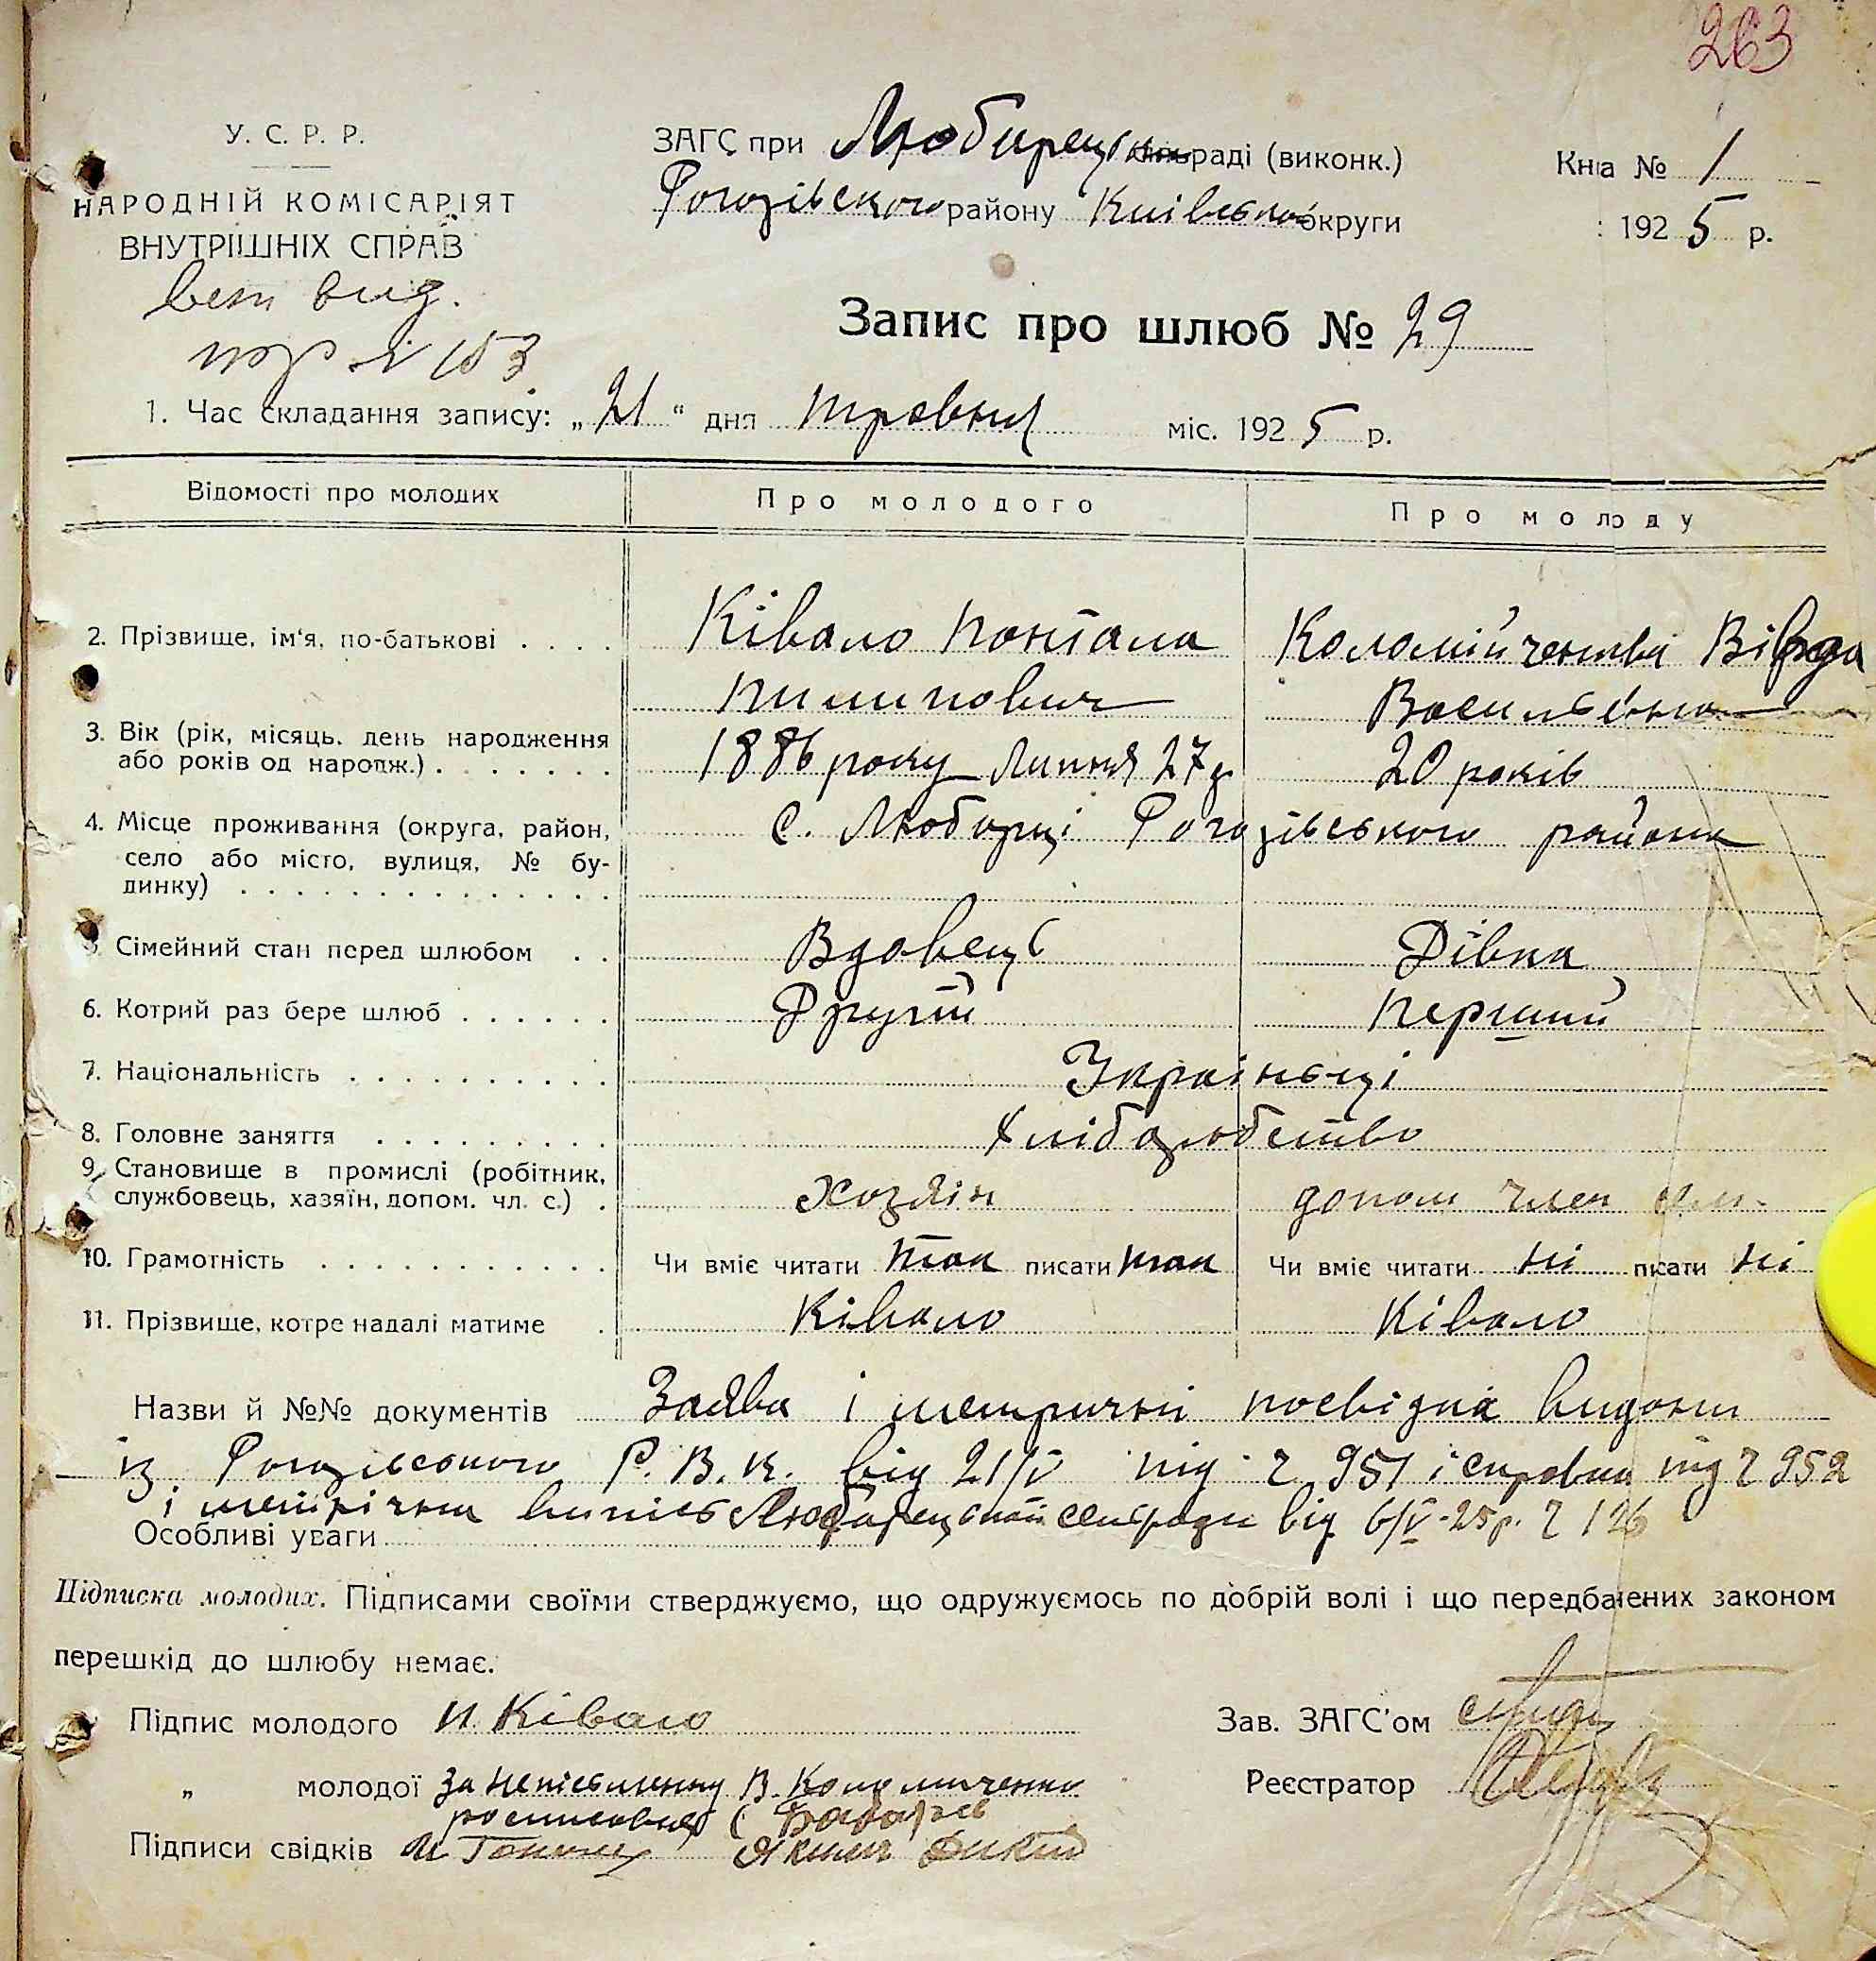 263
У. С. Р. Р.
НАРОДНІЙ КОМІСАРІЯТ
ВНУТРІШНІХ СПРАВ
ЗАГС при Любарецькій раді (виконк.)
Рогозівского району Київської округи
Кн а № 1
192 5 р.
вет вид.
153
Запис про шлюб № 29
1. Час складання запису: „ 21 “ дня травня міс. 192 5 р.
Відомості про молодих
Про молодого
Про молоду
2. Прізвище, ім'я, по-батькові . . . .
Ківало
Пилипович
Коломійченкова
Васильевна
3. Вік (рік, місяць, день народження
або років од народж.) . . . . . . .
1886 року Липня 27 д
20 років
4. Місце проживання (округа, район,
село або місто, вулиця, № бу-
динку) . . . . . . . . . . . . . .
с. Любарці Рогозівського района
5. Сімейний стан перед шлюбом . .
Вдовець
Дівка
6. Котрий раз бере шлюб . . . . . .
Другий
Перший
7. Національність . . . . . . . . . .
Україньці
8. Головне заняття . . . . . . . . .
Хлібозюбство
9. Становище в промислі (робітник,
службовець, хазяїн, допом. чл. с.) .
Хозяін
допом член сем.
10. Грамотність . . . . . . . . . . .
Чи вміє читати так писати так
Чи вміє читати ні писати ні
11. Прізвище, котре надалі матиме .
Ківало
Ківало
Назви й №№ документів Заява і метричні посвідка видани
із Рогозівського Р. В. К. від 21/V під ч 951 і справка під ч 952
і метрічна випись Любарецькой сельради від 6/V-25р. ч 126
Особливі уваги
Підписка молодих. Підписами своїми стверджуємо, що одружуємось по добрій волі і що передбачених законом
перешкід до шлюбу немає.
Підпис молодого П. Ківало
Зав. ЗАГС'ом
„ молодої За неписьменну В. Коломиченко
росписався
Реєстратор
Підписи свідків